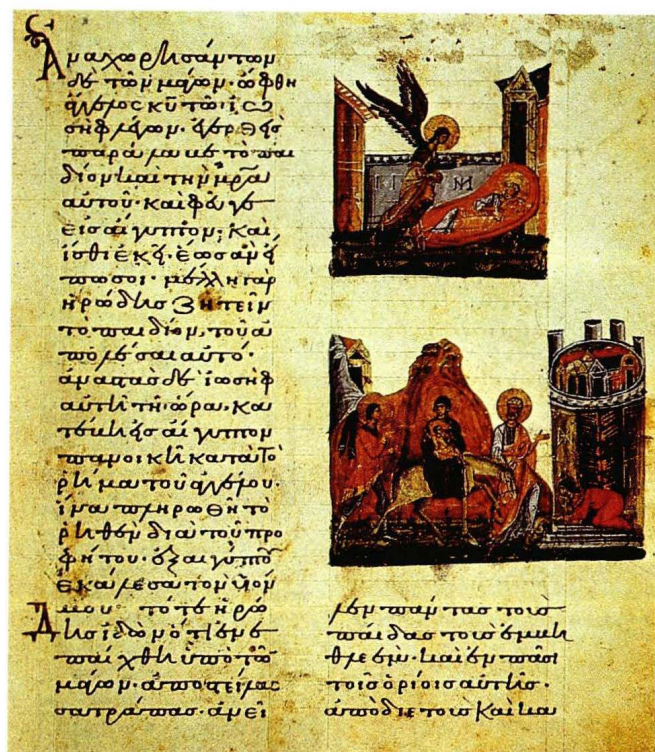 Ἀναχωρησάντων
δὲ τῶν μάγων· ὤφθη
ἄγγελος κυ τῶ ἰω
σὴφ λέγων· ἐγερθεὶς
παράλαβε τὸ παι
δίον καὶ τὴν μρα
αὐτοῦ· καὶ φεῦγε
εἰς αἴγυπτον· καὶ
ἴσθι ἐκεῖ· ἕως ἂν εἴ
πω σοι· μέλλη γὰρ
ἡρώδης ζητεῖν
τὸ παιδίον, τοῦ ἀ
πολέσαι αὐτό·
ἀναστὰς δὲ ἰωσὴφ
αὐτῆ τῆ ὥρα, κα
τέβη εἰς αἴγυπτον
πανοικὴ κατὰ τὸ
ῥῆμα τοῦ ἀγγέλου·
ἵνα πληρωθῆ τὸ
ῥηθὲν διὰ τοῦ προ
φήτου· ἐξ αἰγύπτου
ἐκάλεσα τὸν υἱόν
μου τότε ἡρώ
δης ἰδὼν ὅτι ἐνε
παίχθη ὑπὸ τῶν
μάγων· ἀποστείλας
σατράπας· ἀνεῖ
λεν πάντας τοὺς
παῖδας τοὺς ἐν βη
θλεέμ· καὶ ἐν πᾶσι
τοῖς ὁρίοις αὐτῆς·
ἀπὸ διετοῦς καὶ κα